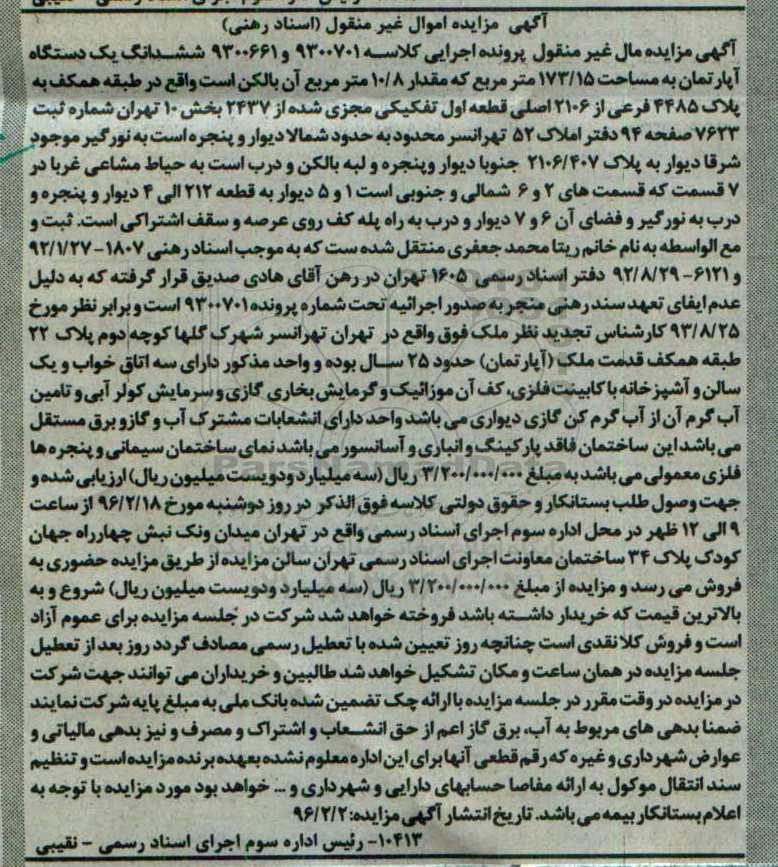 آگهی مزایده اموال غیر منقول (اسناد رهنی)
آگهی مزایده مال غیر منقول پرونده اجرایی کلاسه ۹۳۰۰۷۰۱ و ۹۳۰۰۶۶۱ ششدانگ یک دستگاه
آپارتمان به مساحت ۱۷۳/۱۵ متر مربع که مقدار ۱۰/۸ متر مربع آن بالکن است واقع در طبقه همکف به
پلاک ۴۴۸۵ فرعی از ۲۱۰۶ اصلی قطعه اول تفکیکی مجزی شده از ۲۴۳۷ بخش ۱۰ تهران شماره ثبت
۷۶۲۳ صفحه ۹۴ دفتر املاک ۵۲ تهرانسر محدود به حدود شمالا دیوار و پنجره است به نورگیر موجود
شرقا دیوار به پلاک ۲۱۰۶/۴۰۷ جنوبا دیوار وپنجره و لبه بالکن و درب است به حیاط مشاعی غربا در
۷ قسمت که قسمت های ۲ و ۶ شمالی و جنوبی است ۱ و ۵ دیوار به قطعه ۲۱۲ الی ۴ دیوار و پنجره و
درب به نورگیر و فضای آن ۶ و ۷ دیوار و درب به راه پله کف روی عرصه و سقف اشتراکی است. ثبت و
مع الواسطه به نام خانم ریتا محمد جعفری منتقل شده ست که به موجب اسناد رهنی ۱۸۰۷-۹۲/۱/۲۷
و ۶۱۲۱-۹۲/۸/۲۹ دفتر اسناد رسمی ۱۶۰۵ تهران در رهن آقای هادی صدیق قرار گرفته که به دلیل
عدم ایفای تعهد سند رهنی منجر به صدور اجرائیه تحت شماره پرونده ۹۳۰۰۷۰۱ است و برابر نظر مورخ
۹۳/۸/۲۵ کارشناس تجدید نظر ملک فوق واقع در تهران تهرانسر شهرک گلها کوچه دوم پلاک ۲۲
طبقه همکف قدمت ملک (آپارتمان) حدود ۲۵ سال بوده و واحد مذکور دارای سه اتاق خواب و یک
سالن و آشپزخانه با کابینت فلزی، کف آن موزائیک و گرمایش بخاری گازی و سرمایش کولر آبی و تامین
آب گرم آن از آب گرم کن گازی دیواری می باشد واحد دارای انشعابات مشترک آب و گاز و برق مستقل
می باشد این ساختمان فاقد پارکینگ و انباری و آسانسور می باشد نمای ساختمان سیمانی و پنجره ها
فلزی معمولی می باشد به مبلغ ۳/۲۰۰/۰۰۰/۰۰۰ ریال (سه میلیارد ودویست میلیون ریال) ارزیابی شده و
جهت وصول طلب بستانکار و حقوق دولتی کلاسه فوق الذکر در روز دوشنبه مورخ ۹۶/۲/۱۸ از ساعت
۹ الی ۱۲ ظهر در محل اداره سوم اجرای اسناد رسمی واقع در تهران میدان ونک نبش چهارراه جهان
کودک پلاک ۳۴ ساختمان معاونت اجرای اسناد رسمی تهران سالن مزایده از طریق مزایده حضوری به
فروش می رسد و مزایده از مبلغ ۳/۲۰۰/۰۰۰/۰۰۰ ریال (سه میلیارد ودویست میلیون ریال) شروع و به
بالاترین قیمت که خریدار داشته باشد فروخته خواهد شد شرکت در جلسه مزایده برای عموم آزاد
است و فروش کلا نقدی است چنانچه روز تعیین شده با تعطیل رسمی مصادف گردد روز بعد از تعطیل
جلسه مزایده در همان ساعت و مکان تشکیل خواهد شد طالبین و خریداران می توانند جهت شرکت
در مزایده در وقت مقرر در جلسه مزایده با ارائه چک تضمین شده بانک ملی به مبلغ پایه شرکت نمایند
ضمنا بدهی های مربوط به آب، برق گاز اعم از حق انشعاب و اشتراک و مصرف و نیز بدهی مالیاتی و
عوارض شهرداری و غیره که رقم قطعی آنها برای این اداره معلوم نشده بعهده برنده مزایده است و تنظیم
سند انتقال موکول به ارائه مفاصا حسابهای دارایی و شهرداری و ... خواهد بود مورد مزایده با توجه به
اعلام بستانکار بیمه می باشد. تاریخ انتشار آگهی مزایده: ۹۶/۲/۲
۱۰۴۱۳- رئیس اداره سوم اجرای اسناد رسمی - نقیبی